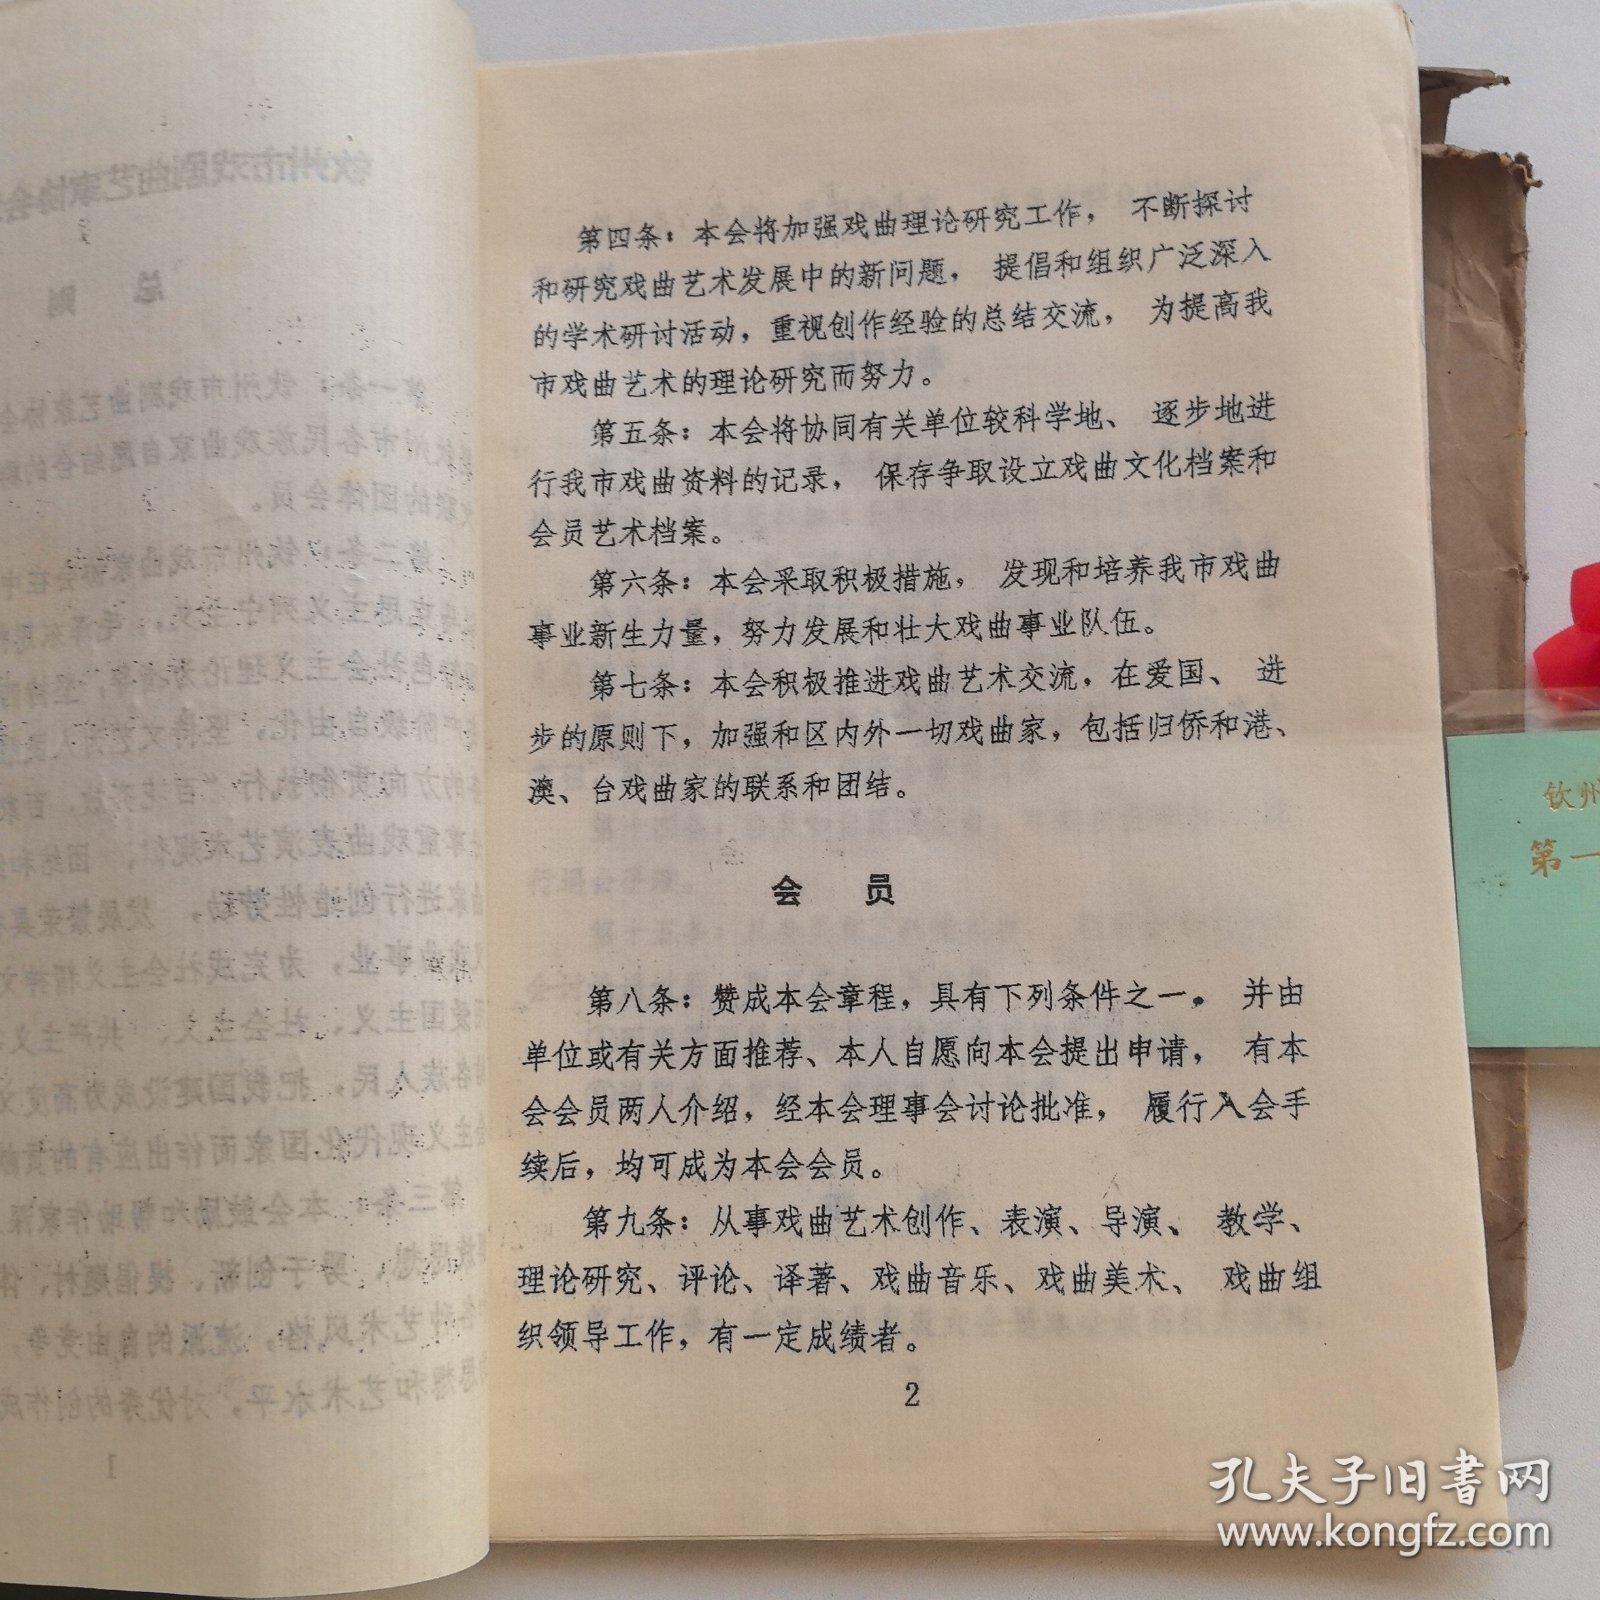 第四条：本会将加强戏曲理论研究工作， 不断探讨
和研究戏曲艺术发展中的新问题， 提倡和组织广泛深入
的学术研讨活动，重视创作经验的总结交流， 为提高我
市戏曲艺术的理论研究而努力。
第五条：本会将协同有关单位较科学地、 逐步地进
行我市戏曲资料的记录， 保存争取设立戏曲文化档案和
会员艺术档案。
第六条：本会采取积极措施， 发现和培养我市戏曲
事业新生力量，努力发展和壮大戏曲事业队伍。
第七条：本会积极推进戏曲艺术交流，在爱国、 进
步的原则下，加强和区内外一切戏曲家，包括归侨和港、
澳、台戏曲家的联系和团结。
会 员
第八条：赞成本会章程，具有下列条件之一。 并由
单位或有关方面推荐、本人自愿向本会提出申请， 有本
会会员两人介绍，经本会理事会讨论批准， 履行入会手
续后，均可成为本会会员。
第九条：从事戏曲艺术创作、表演、导演、 教学、
理论研究、评论、译著、戏曲音乐、戏曲美术、 戏曲组
织领导工作，有一定成绩者。
2
钦州
第一
孔夫子旧书网
www.kongfz.com